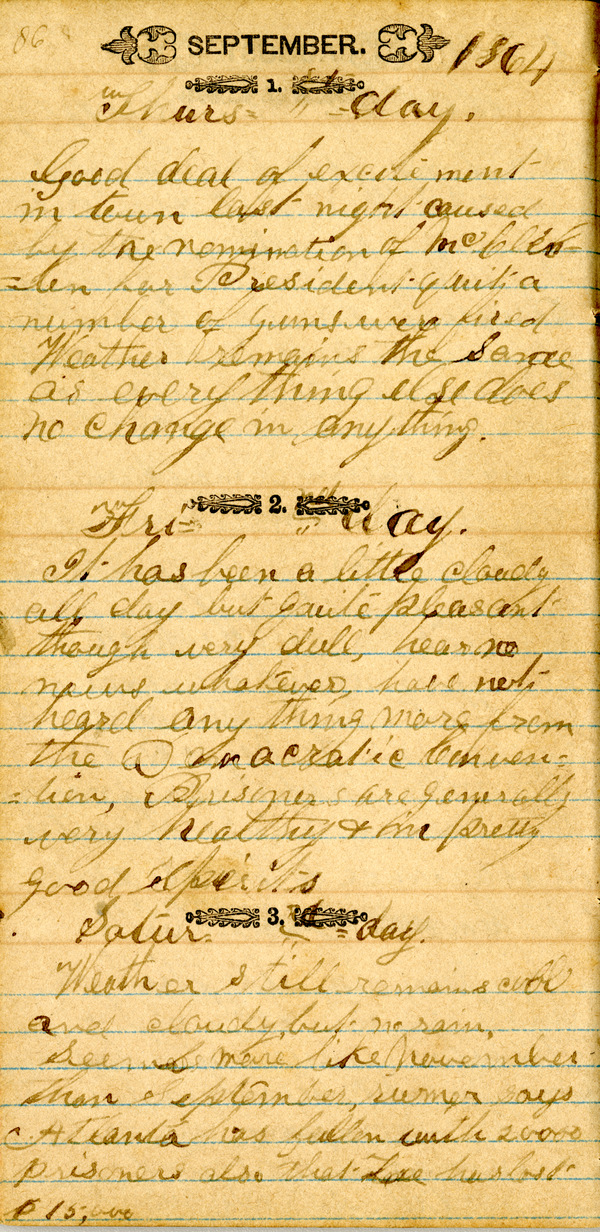 86
SEPTEMBER. 1864
1.
Thurs= " =day.
Good deal of excitement
in town last night caused
by the nomination of McClel=
=len for President quit a
number of guns wer fired
Weather remains the same
as every thing else does
no change in any thing.
2.
Fri= " day.
It has been a little cloudy
all day but quite pleasant
though very dull, hear no
news whatever, have not
heard any thing more from
the Democratic Conven=
=tion, Prisoners are generally
very healthy & in pretty
good Spirits
3.
Satur= " =day.
Weather still remains cool
and cloudy, but no rain,
Seems more like November
than September, rumer says
Atlanta has fallen with 20000
prisoners also that Lee has lost
15,000